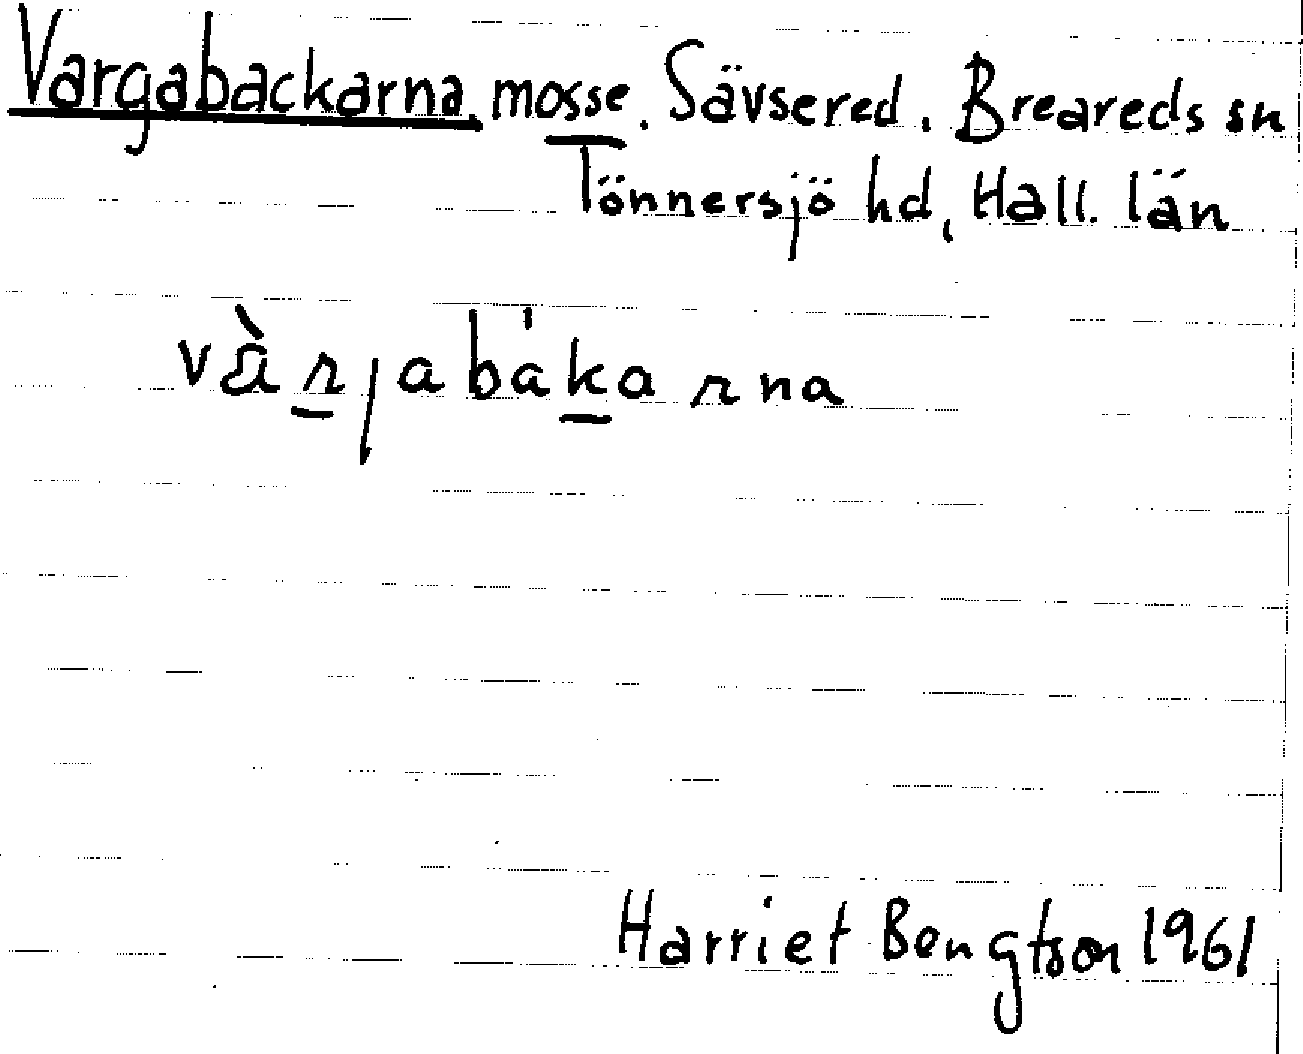 Vargabackarna, mosse. Sävsered. Breareds sn
Tönnersjö hd, Hall. län
vàrjabákarna
Harriet Bengtson 1961